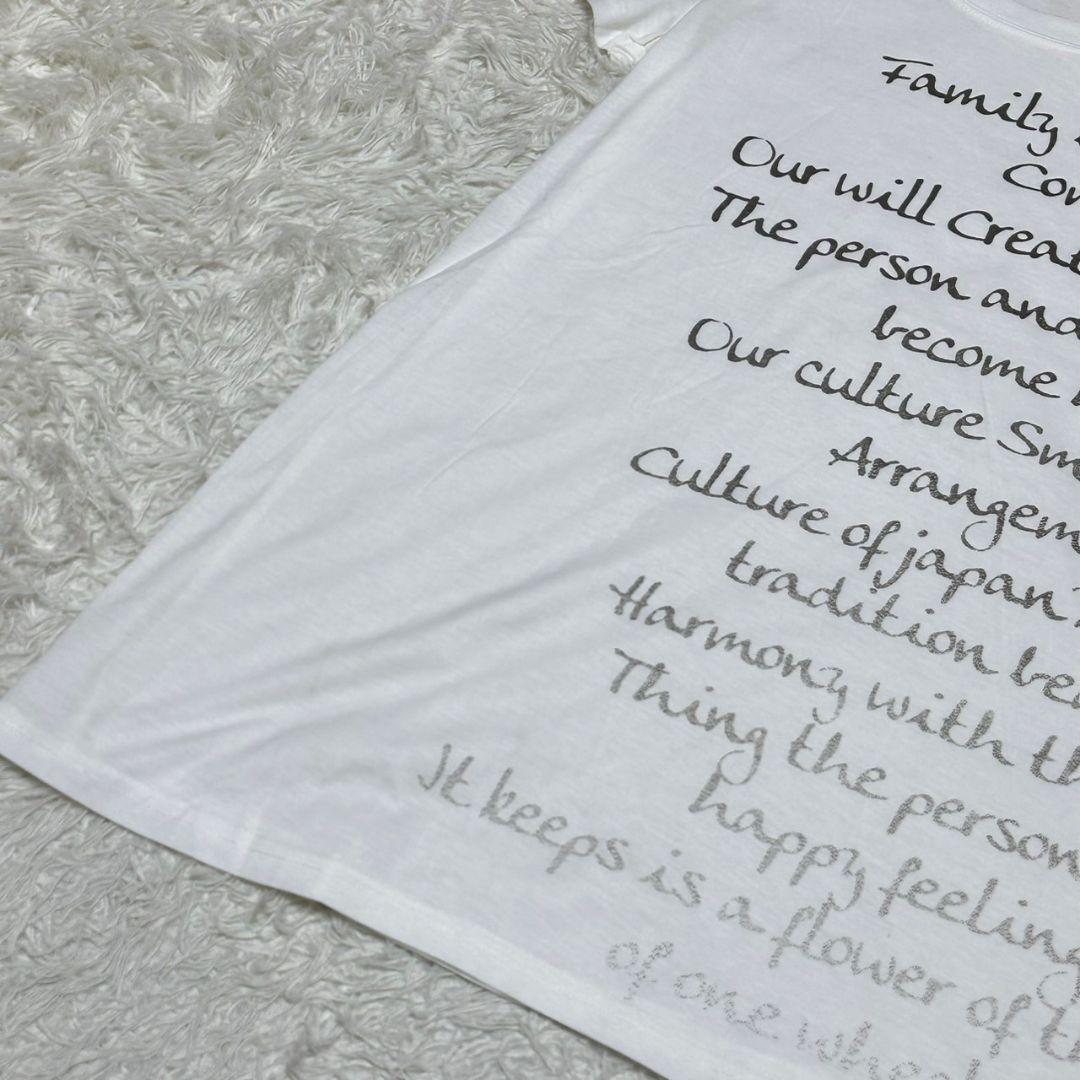 Family
Our will Creat
The person and
become
Our culture Sm
Arrangem
Culture of japan
tradition be
Harmony with th
Thing the person
happy feeling
It keeps is a flower of t
of one wheel